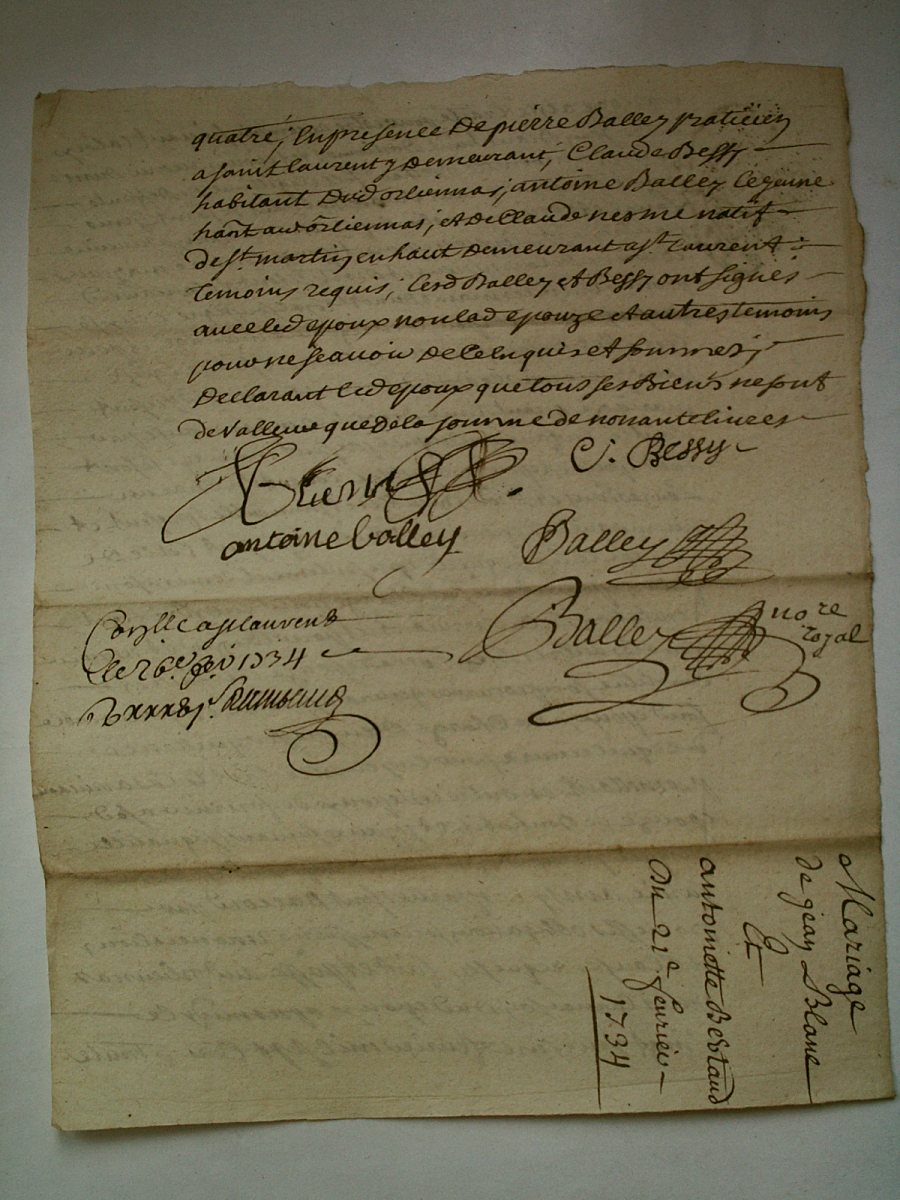 quatre; en presence de pierre Balley praticien
a saint laurent y demeurant; Claude Bessy
habitant dud orliennas; antoine Balley le jeune
hant aud orliennas; et de Claude nesme natif
de st. martin en haut demeurant a st. laurent
temoins requis; lesd Balley et Bessy ont signés
avec led epoux non lad epouze et autres temoins
pour ne scavoir de ce enquis et sommes;
declarant led epoux que tous ses biens ne sont
de valleur que de la somme de nonante livres
C. Bessy
antoine balley
Balley
Balley no.re
royal
a st laurent
le 26e 1734
Mariage
de jean Blanc
Et
antoinette Bertaud
Du 21e fevrier
1734